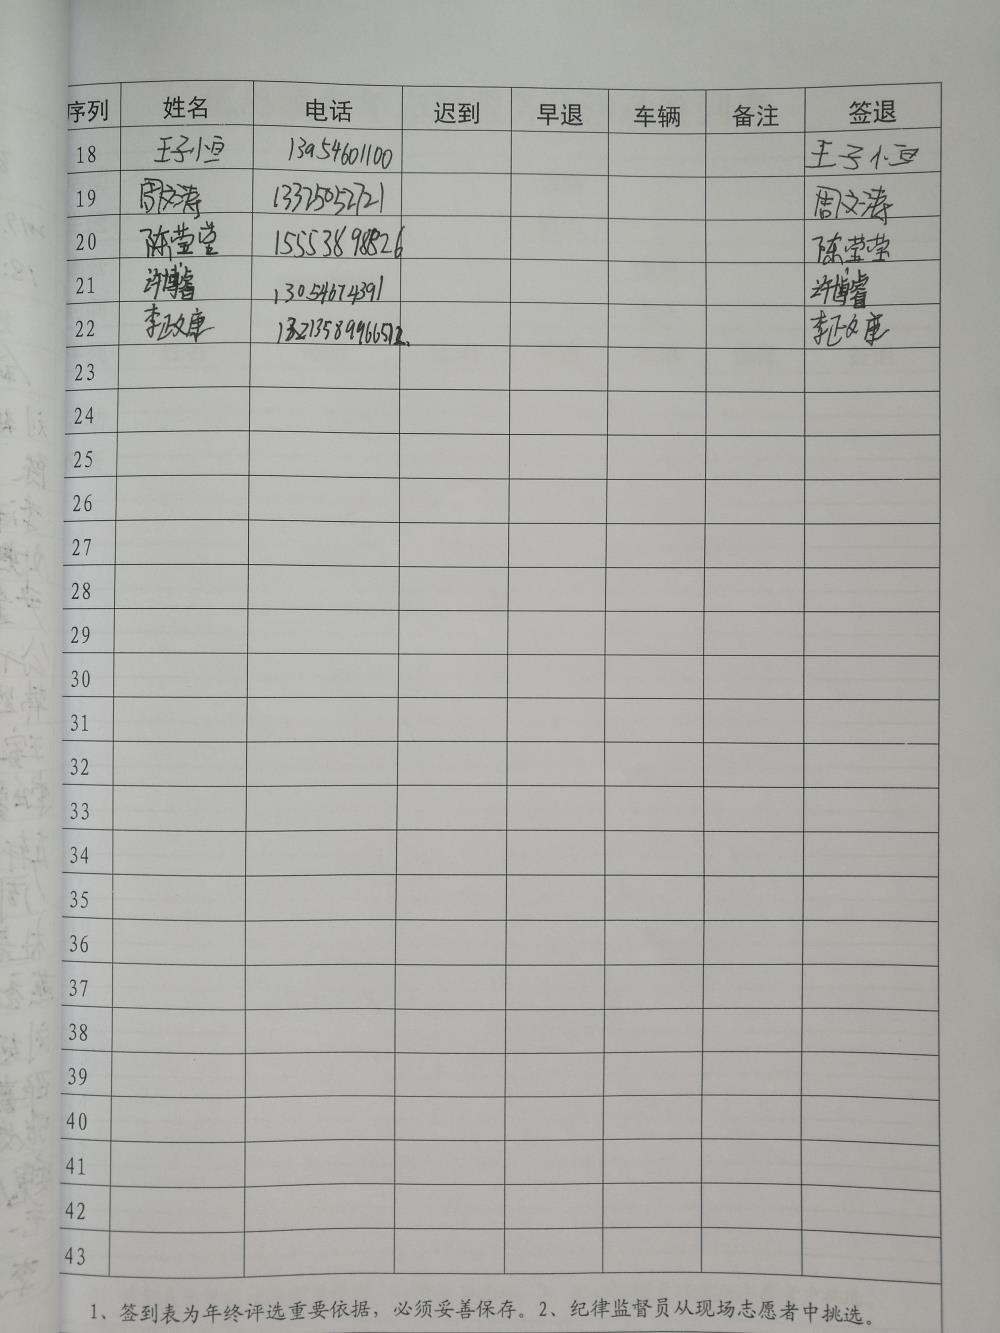 序列 姓名 电话 迟到 早退 车辆 备注 签退
18 王子小恒 13954601100 王子小恒
19 周文涛 13325052721 周文涛
20 陈莹莹 陈莹莹
21 许博睿 13054674391 许博睿
22 李正文康 李正文康
23
24
25
26
27
28
29
30
31
32
33
34
35
36
37
38
39
40
41
42
43
1、签到表为年终评选重要依据，必须妥善保存。2、纪律监督员从现场志愿者中挑选。